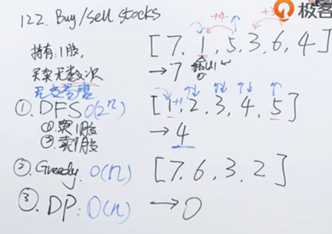 122. Buy/sell stocks
极客
[7, 1, 5, 3, 6, 4]
持有1股
→7
买卖无数次
[1, 2, 3, 4, 5]
①. DFS O(2^n)
①买1股
②卖1股
→4
②. Greedy. O(n)
[7, 6, 3, 2]
③. DP: O(n)
→0